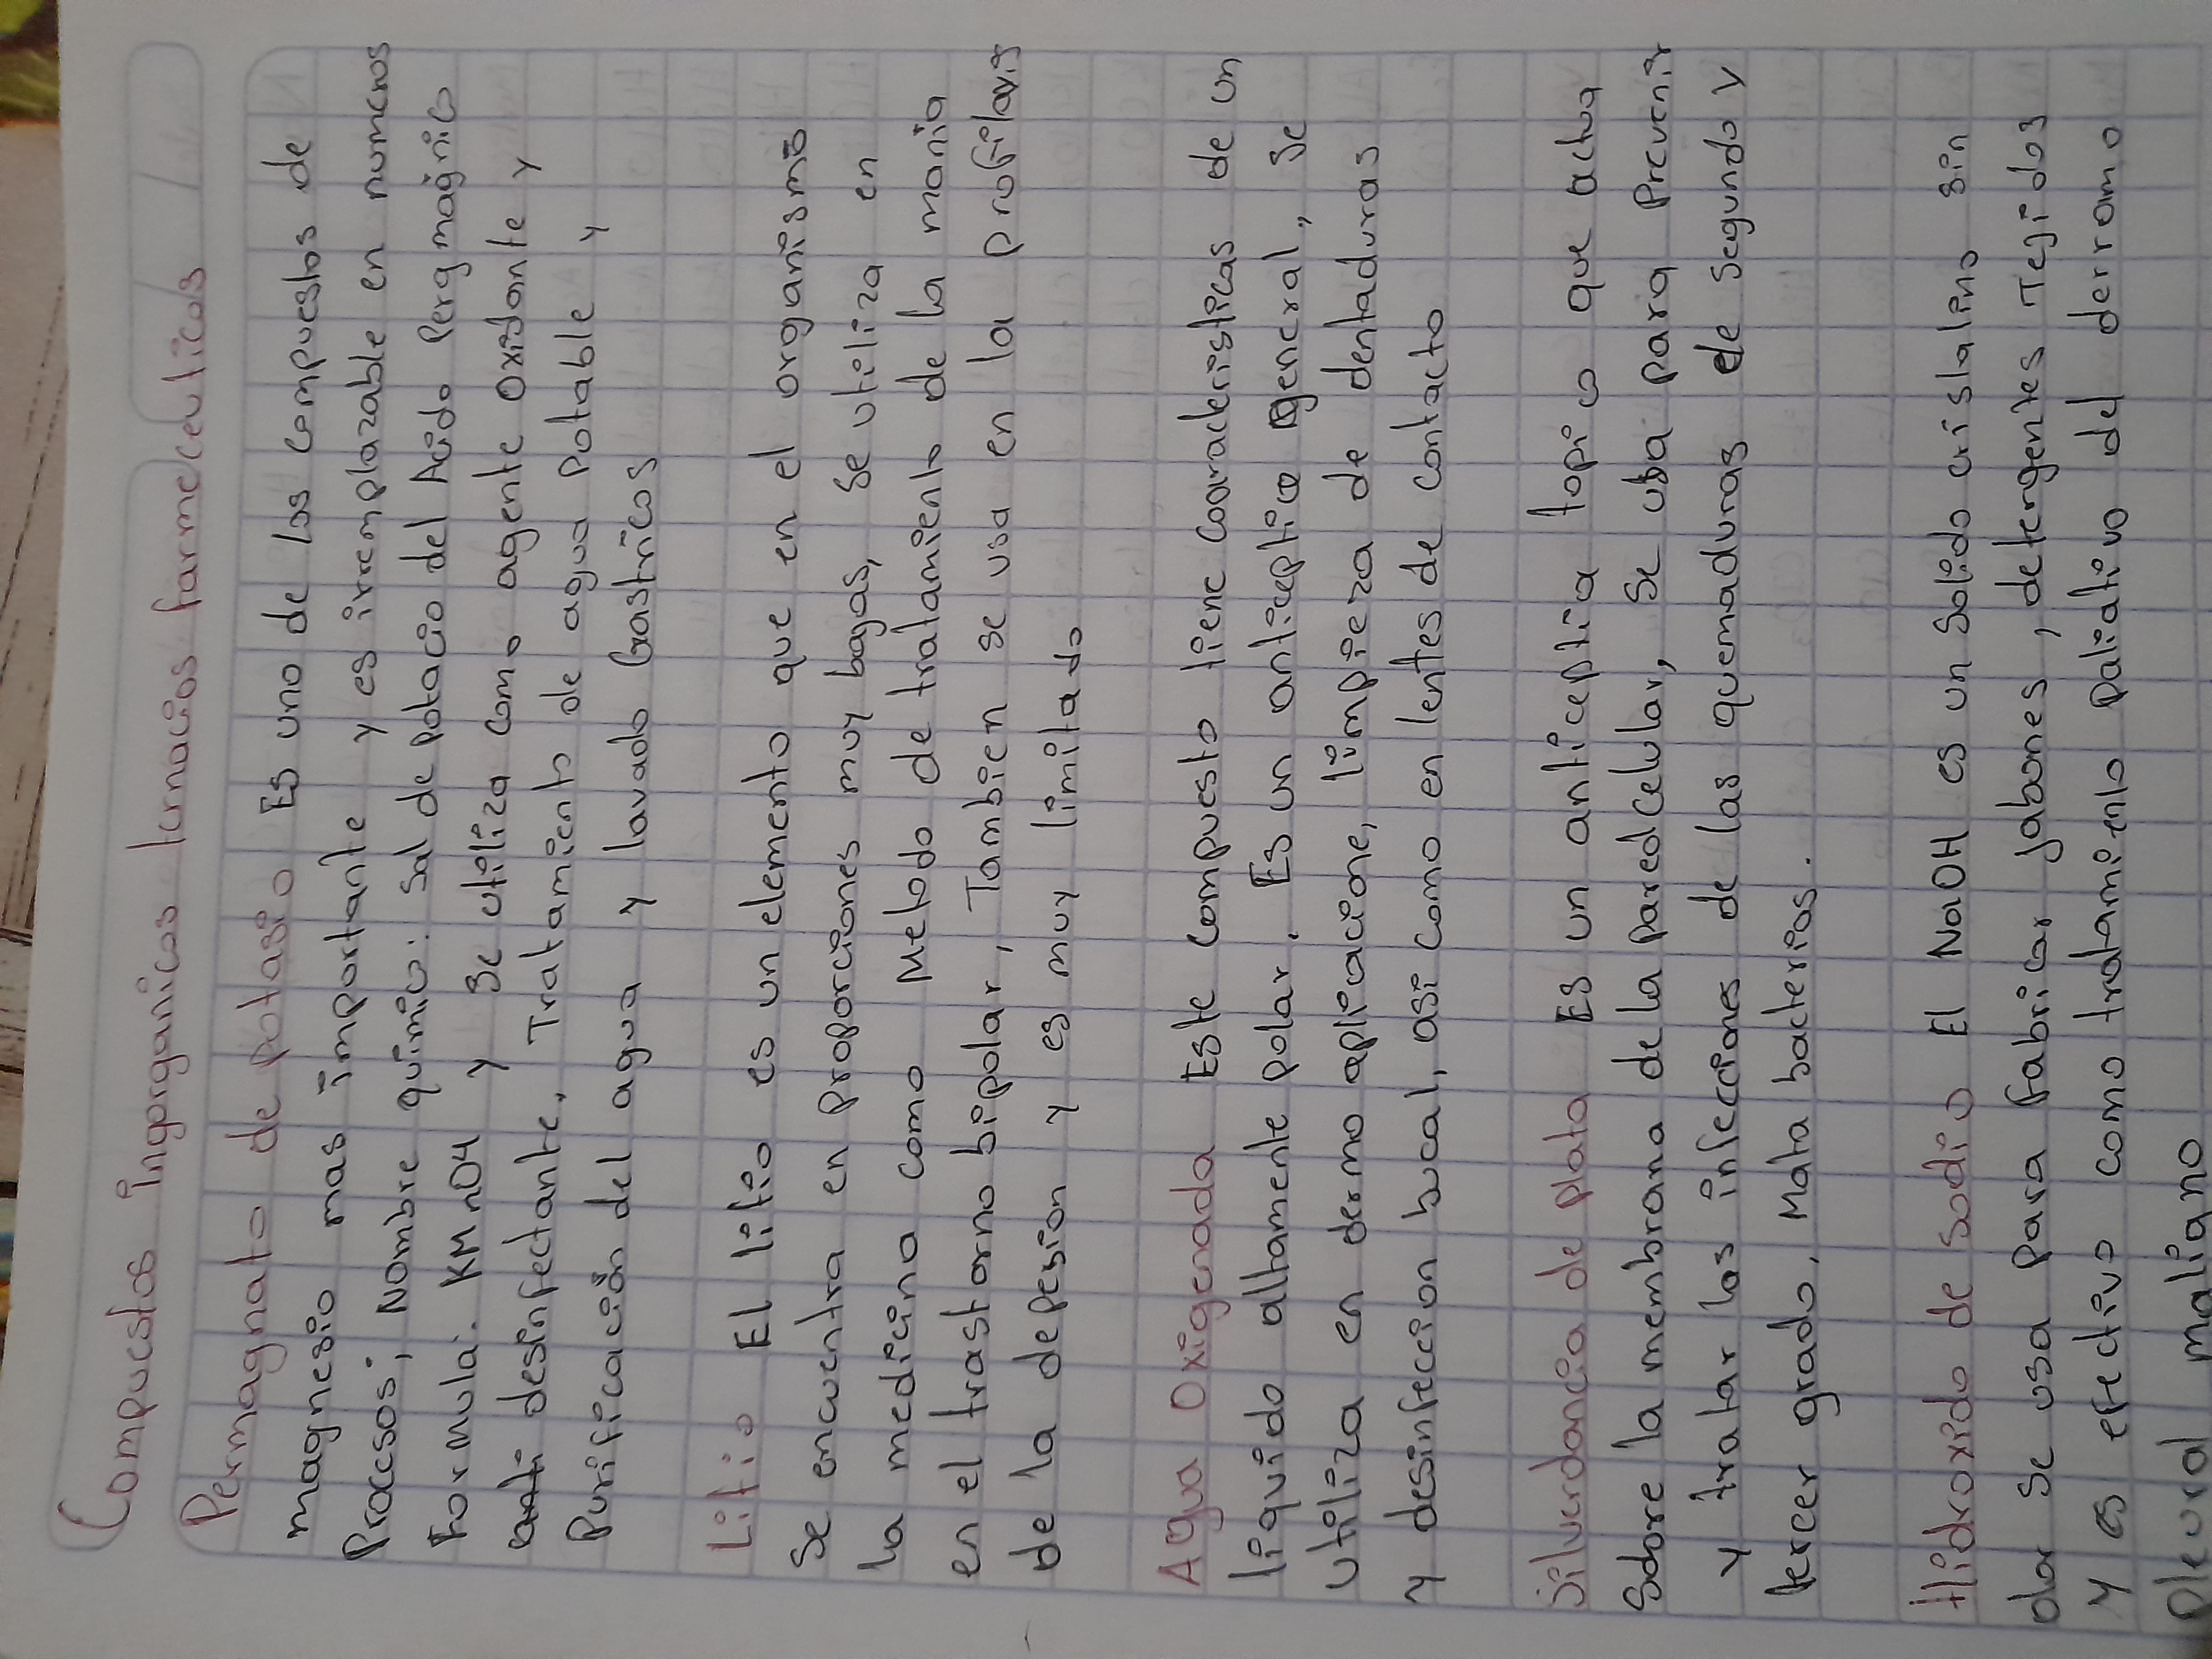 Compuestos ingorganicos ternacios farmeceuticos
Permagnato de potasio Es uno de los compuestos de
magnesio mas importante y es irremplazable en numeros
Procesos; Nombre químico: sal de potacio del Acido Permagnico
Formula: KMnO4 y se utiliza como agente oxidante y
desinfectante, Tratamiento de agua potable y
Purificación del agua y lavado Gastricos
Litio El litio es un elemento que en el organismo
se encuentra en proporciones muy bagas, se utiliza en
la medicina como Metodo de tratamiento de la mania
en el trastorno bipolar, Tambien se usa en la profilaxis
de la depesion y es muy limitado
Agua Oxigenada Este compuesto tiene caracteristicas de un
liquido altamente polar. Es un anticeptico general, se
utiliza en dermo aplicacione, limpieza de dentaduras
y desinfeccion bucal, asi como en lentes de contacto
Silverdancia de plata Es un anticeptica topico que actua
Sobre la membrana de la pared celular, se usa para prevenir
y tratar las infecciones de las quemaduras de segundo y
tercer grado, Mata bacterias.
Hidroxido de sodio El NaOH es un solido cristalino sin
olor se usa para fabricar jabones, detergentes Tejidos
y es efectivo como tratamiento paliativo del derramo
pleural maliano